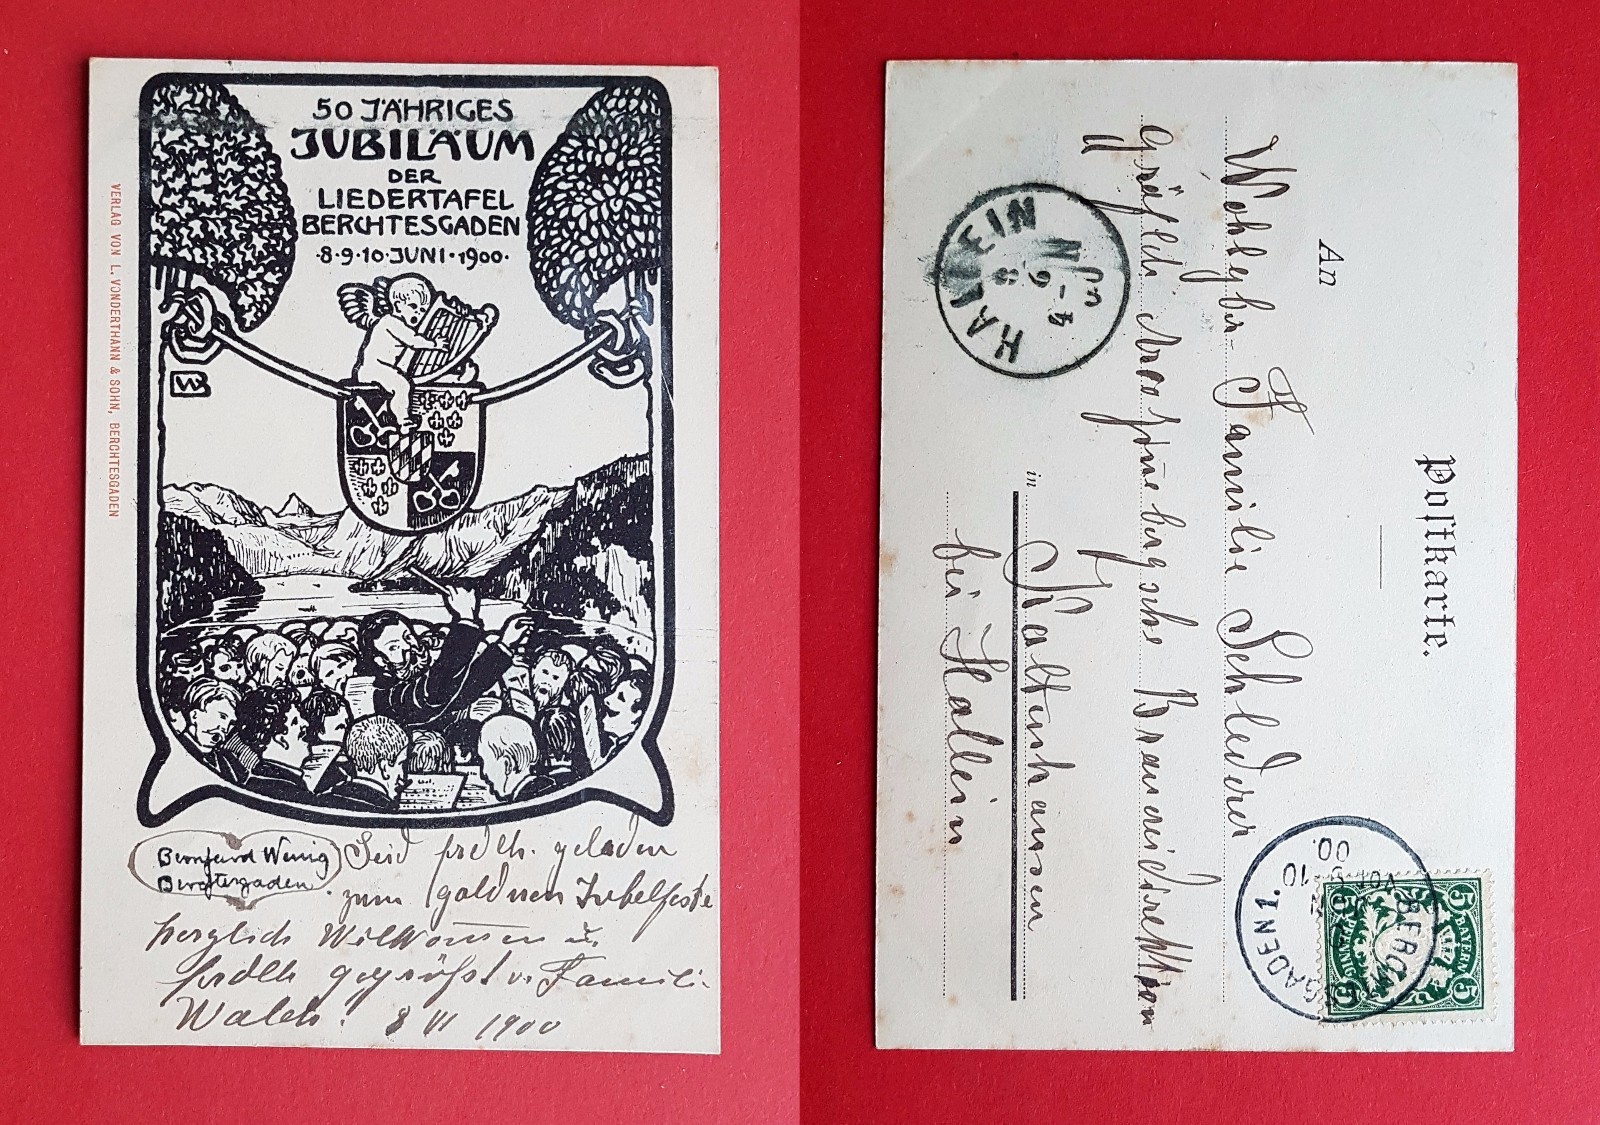 50 JÄHRIGES
JUBILÄUM
DER
LIEDERTAFEL
BERCHTESGADEN
·8·9·10·JUNI·1900·
VERLAG VON L. VONDERTHANN & SOHN, BERCHTESGADEN
W
Bernhard Wenig
Berchtesgaden
Seid frdlh. geladen
zum goldnen Jubelfeste
herzlich Willkommen u.
frdlh gegrüßt v. Famili
8 VI 1900
Postkarte.
An
Wohlgebor. Familie Schlederer
Gräflich Arco Zinnebergsche Brauereidirektion
in
Kaltenhausen
bei Hallein
HALLEIN
BERCHTESGADEN 1.
BAYERN
5 5
PFENNIG
5 5